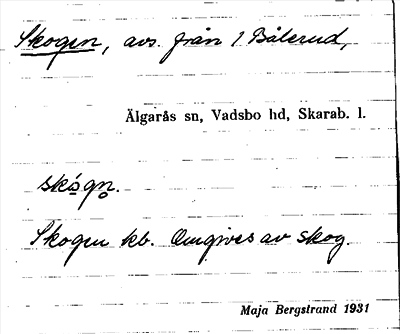 Skogen, avs. från 1 Bålerud,
Älgarås sn, Vadsbo hd, Skarab. l.
skógn̥.
Skogen kb. Omgives av skog.
Maja Bergstrand 1931